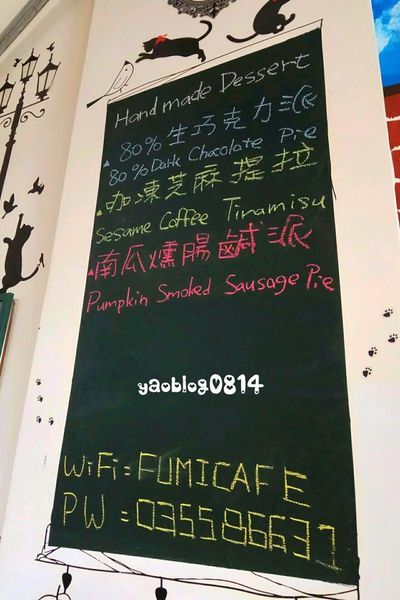 Handmade Dessert
80%生巧克力派
80% Dark Chocolate Pie
加凍芝麻提拉
Sesame Coffee Tiramisu
南瓜燻腸鹹派
Pumpkin Smoked Sausage Pie
yaoblog0814
WiFi=FUMICAFE
PW=035586637